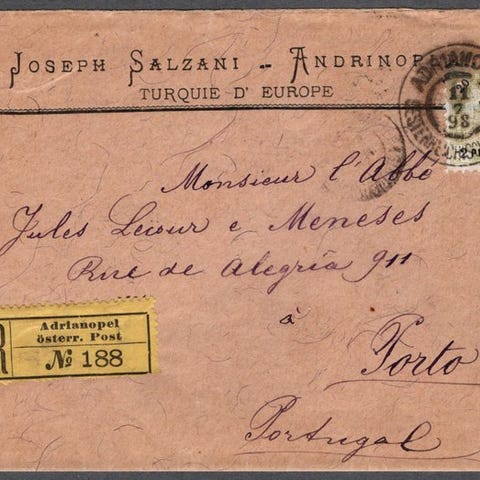 JOSEPH SALZANI - ANDRINOP
TURQUIE D' EUROPE
ADRIANO
11
7
98
2 PI
Monsieur l'Abbé
Jules e Meneses
Rue de Alegria 911
à
Porto
Portugal
R
Adrianopel
österr. Post
№ 188